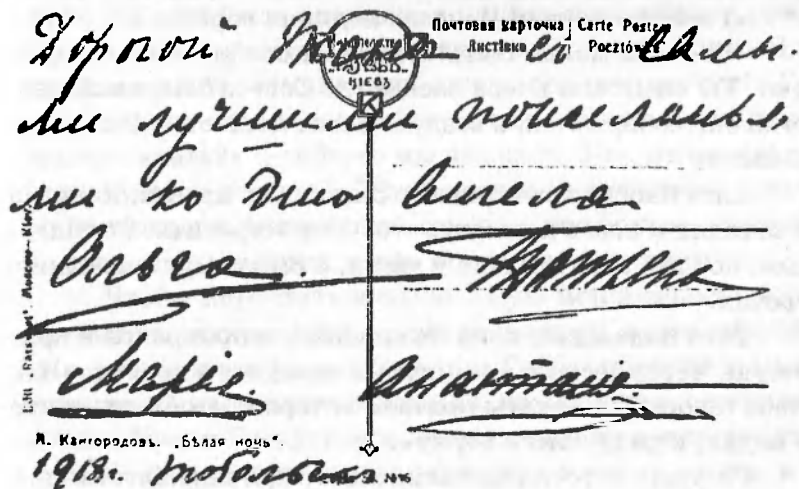 Почтовая карточка Carte Posta
Листівка Pocztów
Дорогой съ самы-
ми лучшими пожеланья
ми ко дню Ангела
Ольга. Татьяна
Марія Анастасія
М. Кайгородовъ. „Бѣлая ночь“
1918г. Тобольскъ
КІЕВЪ